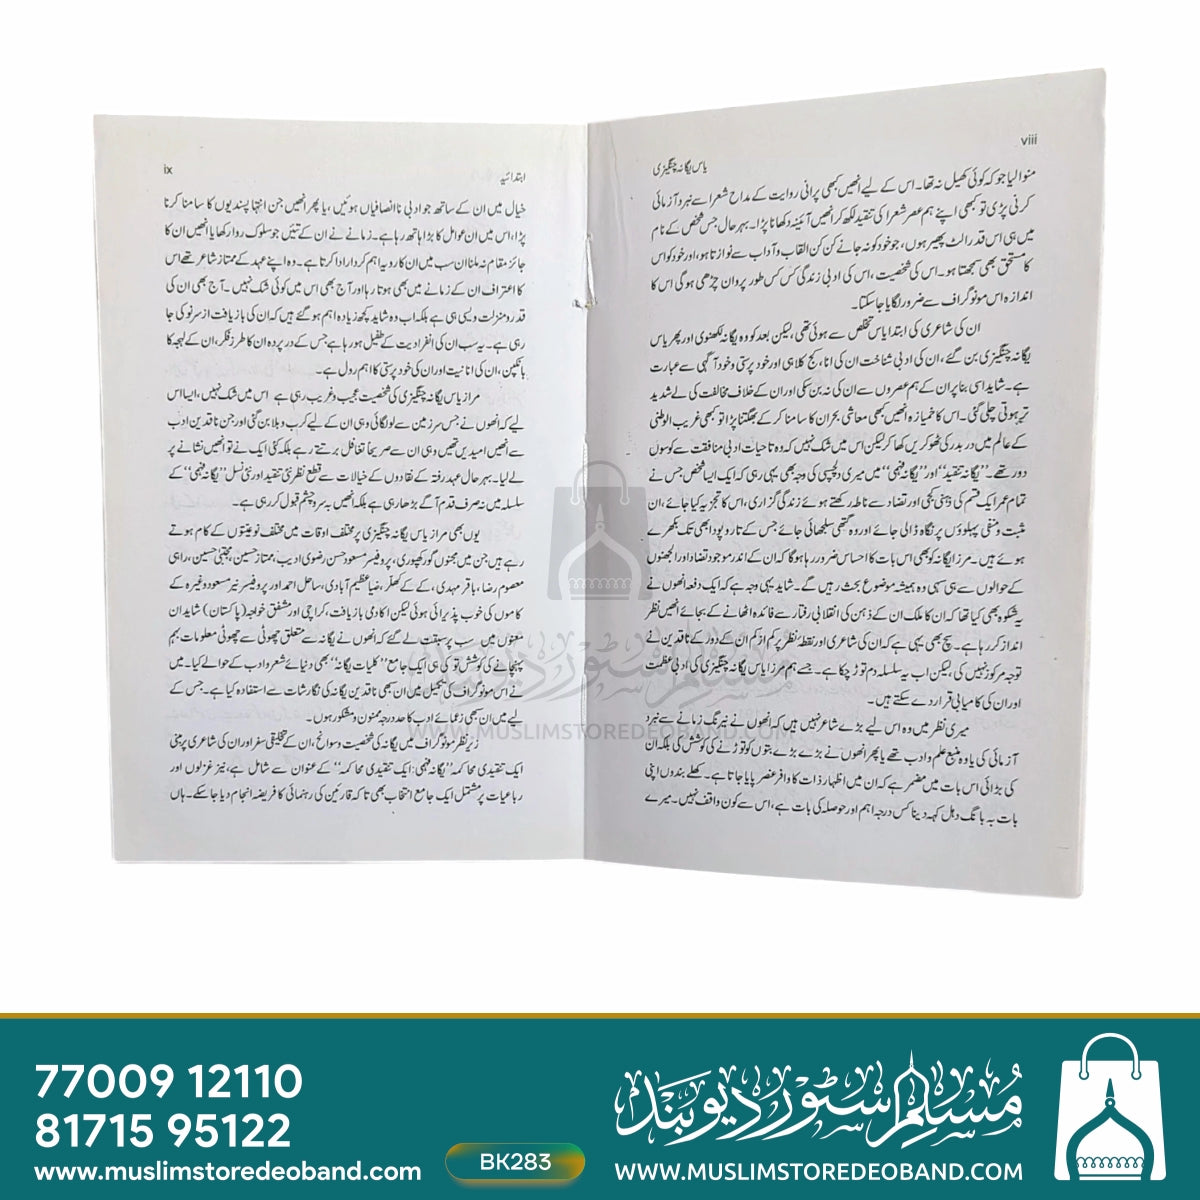 viii
یاس یگانہ چنگیزی
منوالیا جو کہ کوئی کھیل نہ تھا۔ اس کے لیے انھیں کبھی پرانی روایت کے مداح شعرا سے نبرد آزمائی
کرنی پڑی تو کبھی اپنے ہم عصر شعرا کی تنقید لکھ کر انھیں آئینہ دکھانا پڑا۔ بہر حال جس شخص کے نام
میں ہی اس قدر الٹ پھیر ہوں، جو خود کو نہ جانے کن کن القاب و آداب سے نوازتا ہو، اور خود کو اس
کا مستحق بھی سمجھتا ہو۔ اس کی شخصیت، اس کی ادبی زندگی کس کس طور پروان چڑھی ہوگی اس کا
اندازہ اس مونوگراف سے ضرور لگایا جاسکتا۔
ان کی شاعری کی ابتدا یاس تخلص سے ہوئی تھی، لیکن بعد کو وہ یگانہ لکھنوی اور پھر یاس
یگانہ چنگیزی بن گئے، ان کی ادبی شناخت ان کی انا، کج کلاہی اور خود پرستی و خود آگہی سے عبارت
ہے۔ شاید اسی بنا پر ان کے ہم عصروں سے ان کی نہ بن سکی اور ان کے خلاف مخالفت کی لے شدید
تر ہوتی چلی گئی۔ اس کا خمیازہ انھیں کبھی معاشی بحران کا سامنا کر کے بھگتنا پڑا تو کبھی غریب الوطنی
کے عالم میں در بدر کی ٹھوکریں کھا کر لیکن اس میں شک نہیں کہ وہ تا حیات ادبی منافقت سے کوسوں
دور تھے۔ ”یگانہ تنقید“ اور ”یگانہ فہمی“ میں میری دلچسپی کی وجہ بھی یہی رہی کہ ایک ایسا شخص جس نے
تمام عمر ایک قسم کی ذہنی کجی اور تضاد سے ناطہ رکھتے ہوئے زندگی گزاری، اس کا تجزیہ کیا جائے، ان
مثبت و منفی پہلوؤں پر نگاہ ڈالی جائے اور وہ گتھی سلجھائی جائے جس کے تار و پود ابھی تک بکھرے
ہوئے ہیں۔ مرزا یگانہ کو بھی اس بات کا احساس ضرور رہا ہوگا کہ ان کے اندر موجود تضاد اور الجھنوں
کے حوالوں سے ہی سہی وہ ہمیشہ موضوع بحث رہیں گے۔ شاید یہی وجہ ہے کہ ایک دفعہ انھوں نے
یہ شکوہ بھی کیا تھا کہ ان کا ملک ان کے ذہن کی انقلابی رفتار سے فائدہ اٹھانے کے بجائے انھیں نظر
انداز کر رہا ہے۔ سچ بھی یہی ہے کہ ان کی شاعری اور نقطۂ نظر پر کم از کم ان کے دور کے ناقدین نے
توجہ مرکوز نہیں کی، لیکن اب یہ سلسلہ دم توڑ چکا ہے۔ جسے ہم مرزا یاس یگانہ چنگیزی کی ادبی عظمت
اور ان کی کامیابی قرار دے سکتے ہیں۔
میری نظر میں وہ اس لیے بڑے شاعر نہیں ہیں کہ انھوں نے نیرنگ زمانے سے نبرد
آزمائی کی یا وہ منبع علم و ادب تھے یا پھر انھوں نے بڑے بڑے بتوں کو توڑنے کی کوشش کی بلکہ ان
کی بڑائی اس بات میں مضمر ہے کہ ان میں اظہار ذات کا وافر عنصر پایا جاتا ہے۔ کھلے بندوں اپنی
بات بہ بانگ دہل کہہ دینا کس درجہ اہم اور حوصلہ کی بات ہے، اس سے کون واقف نہیں۔ میرے
ابتدائیہ
ix
خیال میں ان کے ساتھ جو ادبی ناانصافیاں ہوئیں، یا پھر انھیں جن انتہا پسندیوں کا سامنا کرنا
پڑا، اس میں ان عوامل کا بڑا ہاتھ رہا ہے۔ زمانے نے ان کے تئیں جو سلوک روا رکھا یا انھیں ان کا
جائز مقام نہ ملنا ان سب میں ان کا رویہ اہم کردار ادا کرتا ہے۔ وہ اپنے عہد کے ممتاز شاعر تھے اس
کا اعتراف ان کے زمانے میں بھی ہوتا رہا اور آج بھی اس میں کوئی شک نہیں۔ آج بھی ان کی
قدر و منزلت ویسی ہی ہے بلکہ اب وہ شاید کچھ زیادہ اہم ہو گئے ہیں کہ ان کی بازیافت از سر نو کی جا
رہی ہے۔ یہ سب ان کی انفرادیت کے طفیل ہو رہا ہے جس کے در پردہ ان کا طرز فکر، ان کے لہجہ کا
بانکپن، ان کی انانیت اور ان کی خود پرستی کا اہم رول ہے۔
مرزا یاس یگانہ چنگیزی کی شخصیت عجیب و غریب رہی ہے اس میں شک نہیں، ایسا اس
لیے کہ انھوں نے جس سرزمین سے لو لگائی وہی ان کے لیے کرب و بلا بن گئی اور جن ناقدین ادب
سے انھیں امیدیں تھیں وہی ان سے صریحاً تغافل برتتے رہے بلکہ کئی ایک نے تو انھیں نشانے پر
لے لیا۔ بہر حال عہد رفتہ کے نقادوں کے خیالات سے قطع نظر نئی تنقید اور نئی نسل ”یگانہ فہمی“ کے
سلسلہ میں نہ صرف قدم آگے بڑھا رہی ہے بلکہ انھیں بہ سر و چشم قبول کر رہی ہے۔
یوں بھی مرزا یاس یگانہ چنگیزی پر مختلف اوقات میں مختلف نوعیتوں کے کام ہوتے
رہے ہیں جن میں مجنوں گورکھپوری، پروفیسر مسعود حسن رضوی ادیب، ممتاز حسین، مجتبیٰ حسین، راہی
معصوم رضا، باقر مہدی، کے کے کھلر، ضیا عظیم آبادی، ساحل احمد اور پروفیسر نیر مسعود وغیرہ کے
کاموں کی خوب پذیرائی ہوئی لیکن اکادمی بازیافت، کراچی اور مشفق خواجہ (پاکستان) شاید ان
معنوں میں سب پر سبقت لے گئے کہ انھوں نے یگانہ سے متعلق چھوٹی سے چھوٹی معلومات بہم
پہنچانے کی کوشش تو کی ہی ایک جامع ”کلیات یگانہ“ بھی دنیائے شعر و ادب کے حوالے کیا۔ میں
نے اس مونوگراف کی تکمیل میں ان بھی ناقدین یگانہ کی نگارشات سے استفادہ کیا ہے۔ جس کے
لیے میں ان سبھی زعمائے ادب کا حد درجہ ممنون و مشکور ہوں۔
زیر نظر مونوگراف میں یگانہ کی شخصیت و سوانح، ان کے تخلیقی سفر اور ان کی شاعری پر مبنی
ایک تنقیدی محاکمہ ”یگانہ فہمی: ایک تنقیدی محاکمہ“ کے عنوان سے شامل ہے، نیز غزلوں اور
رباعیات پر مشتمل ایک جامع انتخاب بھی تاکہ قارئین کی رہنمائی کا فریضہ انجام دیا جا سکے۔ ہاں
مسلم سٹور دیوبند
WWW.MUSLIMSTOREDEOBAND.COM
77009 12110
81715 95122
www.muslimstoredeoband.com
BK283
مسلم سٹور دیوبند
WWW.MUSLIMSTOREDEOBAND.COM